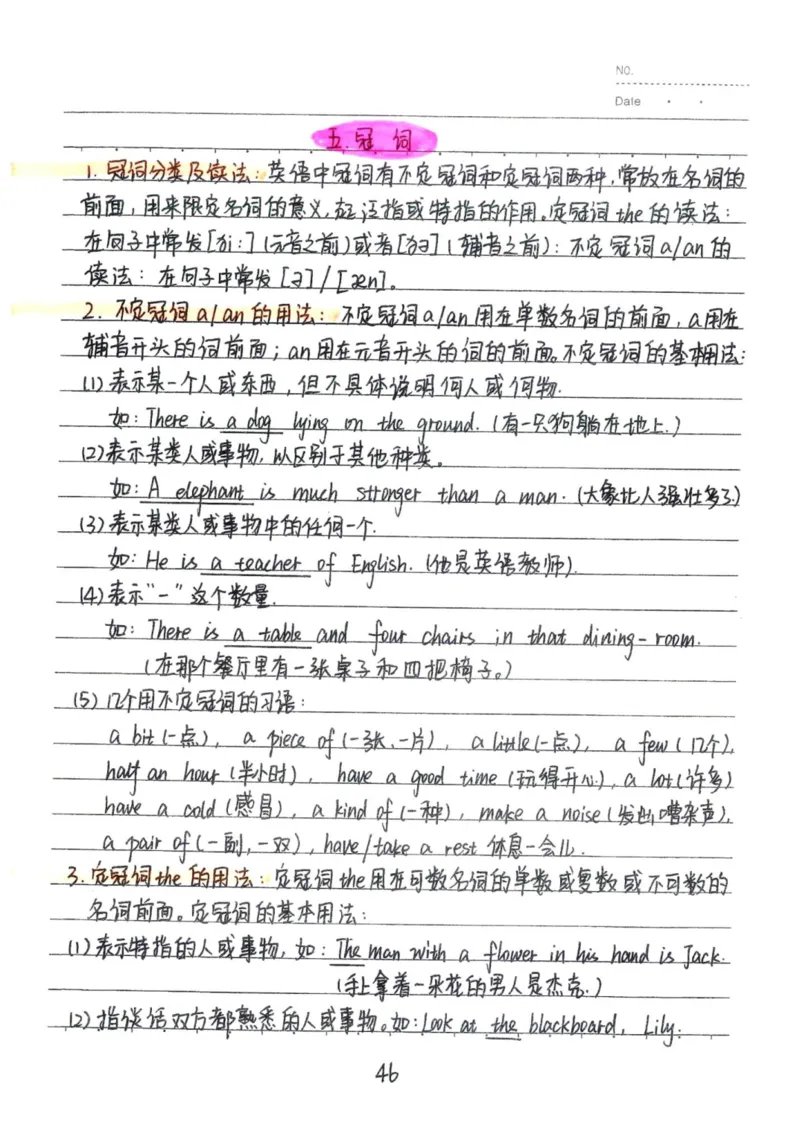 NO.
Date
五.冠词
1. 冠词分类及读法：英语中冠词有不定冠词和定冠词两种，常放在名词的
前面，用来限定名词的意义，起泛指或特指的作用。定冠词the的读法：
在句子中常发[ði:]（元音之前）或者[ðə]（辅音之前）：不定冠词a/an的
读法：在句子中常发[ə]/[æn]。
2. 不定冠词a/an的用法：不定冠词a/an用在单数名词的前面，a用在
辅音开头的词前面；an用在元音开头的词的前面。不定冠词的基本用法：
(1)表示某一个人或东西，但不具体说明何人或何物.
如：There is a dog lying on the ground.（有一只狗躺在地上.）
(2)表示某类人或事物，以区别于其他种类。
如：A elephant is much stronger than a man.（大象比人强壮多了.）
(3)表示某类人或事物中的任何一个.
如：He is a teacher of English.（他是英语教师）.
(4)表示“一”这个数量.
如：There is a table and four chairs in that dining-room.
（在那个餐厅里有一张桌子和四把椅子。）
(5)几个用不定冠词的习语：
a bit(一点)， a piece of(一张、一片)， a little(一点)， a few(几个)，
half an hour(半小时)， have a good time(玩得开心)，a lot(许多)
have a cold(感冒)，a kind of(一种)，make a noise(发出嘈杂声)，
a pair of(一副，一双)，have/take a rest 休息一会儿.
3. 定冠词the的用法：定冠词the用在可数名词的单数或复数或不可数的
名词前面。定冠词的基本用法：
(1)表示特指的人或事物，如：The man with a flower in his hand is Jack.
（手上拿着一朵花的男人是杰克.）
(2)指谈话双方都熟悉的人或事物。如：Look at the blackboard, Lily.
46